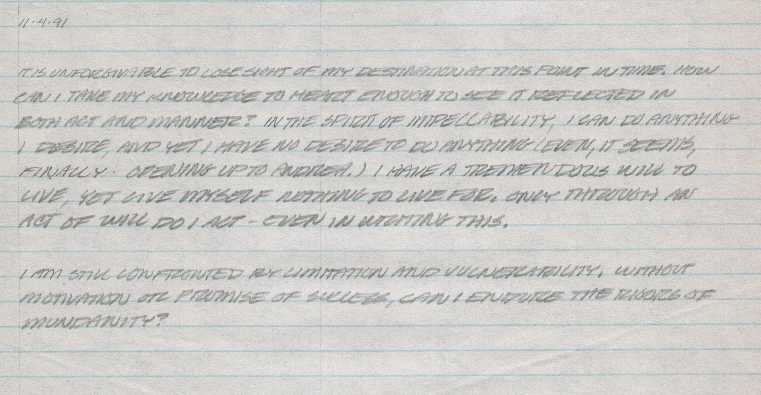 11·4·91
IT IS UNFORGIVABLE TO LOSE SIGHT OF MY DESTINATION AT THIS POINT IN TIME. HOW
CAN I TAKE MY KNOWLEDGE TO HEART ENOUGH TO SEE IT REFLECTED IN
BOTH ACT AND MANNER? IN THE SPIRIT OF IMPECCABILITY, I CAN DO ANYTHING
I DESIRE, AND YET I HAVE NO DESIRE TO DO ANYTHING (EVEN, IT SEEMS,
FINALLY · OPENING UP TO ANDREA.) I HAVE A TREMENDOUS WILL TO
LIVE, YET GIVE MYSELF NOTHING TO LIVE FOR. ONLY THROUGH AN
ACT OF WILL DO I ACT - EVEN IN WRITING THIS.
I AM STILL CONFRONTED BY LIMITATION AND VULNERABILITY. WITHOUT
MOTIVATION OR PROMISE OF SUCCESS, CAN I ENDURE THE RIGORS OF
MUNDANITY?